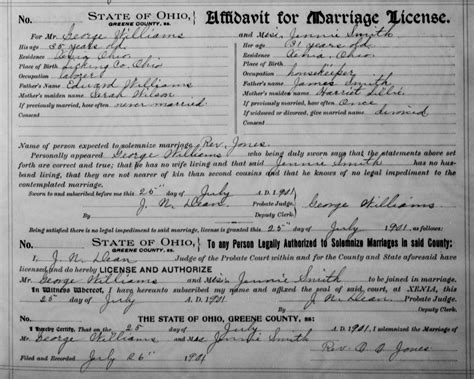 No. STATE OF OHIO, GREENE COUNTY, ss. Affidavit for Marriage License.
For Mr. George Williams and Miss Jennie Smith
His age 35 years old. Her age 31 years old.
Residence Xenia, Ohio Residence Xenia, Ohio.
Place of Birth Licking Co. Ohio Place of Birth
Occupation laborer Occupation housekeeper
Father's Name Edward Williams Father's Name James Smith
Mother's maiden name Sarah Wilson Mother's maiden name Harriet
If previously married, how often never married If previously married, how often Once
Consent If married or divorced, give name divorced
Consent
Name of person expected to solemnize marriage Rev. Jones.
Personally appeared George Williams who being duly sworn says that the statements above set
forth are correct and true; that he has no wife living and that said Jennie Smith has no hus-
band living, that they are not nearer of kin than second cousins and that he knows of no legal impediment to the
contemplated marriage.
Sworn to and subscribed before me this 25th day of July A. D. 1901
J. N. Dean Probate Judge. George Williams
By Deputy Clerk.
Being satisfied there is no legal impediment to said marriage, license is granted this 25th day of July 1901, as follows:
No. STATE OF OHIO, GREENE COUNTY, ss. To any Person Legally Authorized to Solemnize Marriages in said County:
I, J. N. Dean Judge of the Probate Court within and for the County and State aforesaid have
licensed, and do hereby LICENSE AND AUTHORIZE
Mr. George Williams and Miss Jennie Smith to be joined in marriage.
In Witness Whereof, I have hereunto subscribed my name and affixed the seal of said court, at XENIA, this
25 day of July A. D. 1901. J. N. Dean Probate Judge.
By Deputy Clerk.
No. THE STATE OF OHIO, GREENE COUNTY, ss:
I Hereby Certify, That on the 25 day of July A. D. 1901, I solemnized the Marriage of
Mr. George Williams and Jennie Smith
Filed and Recorded July 26th 1901 Rev. Jones